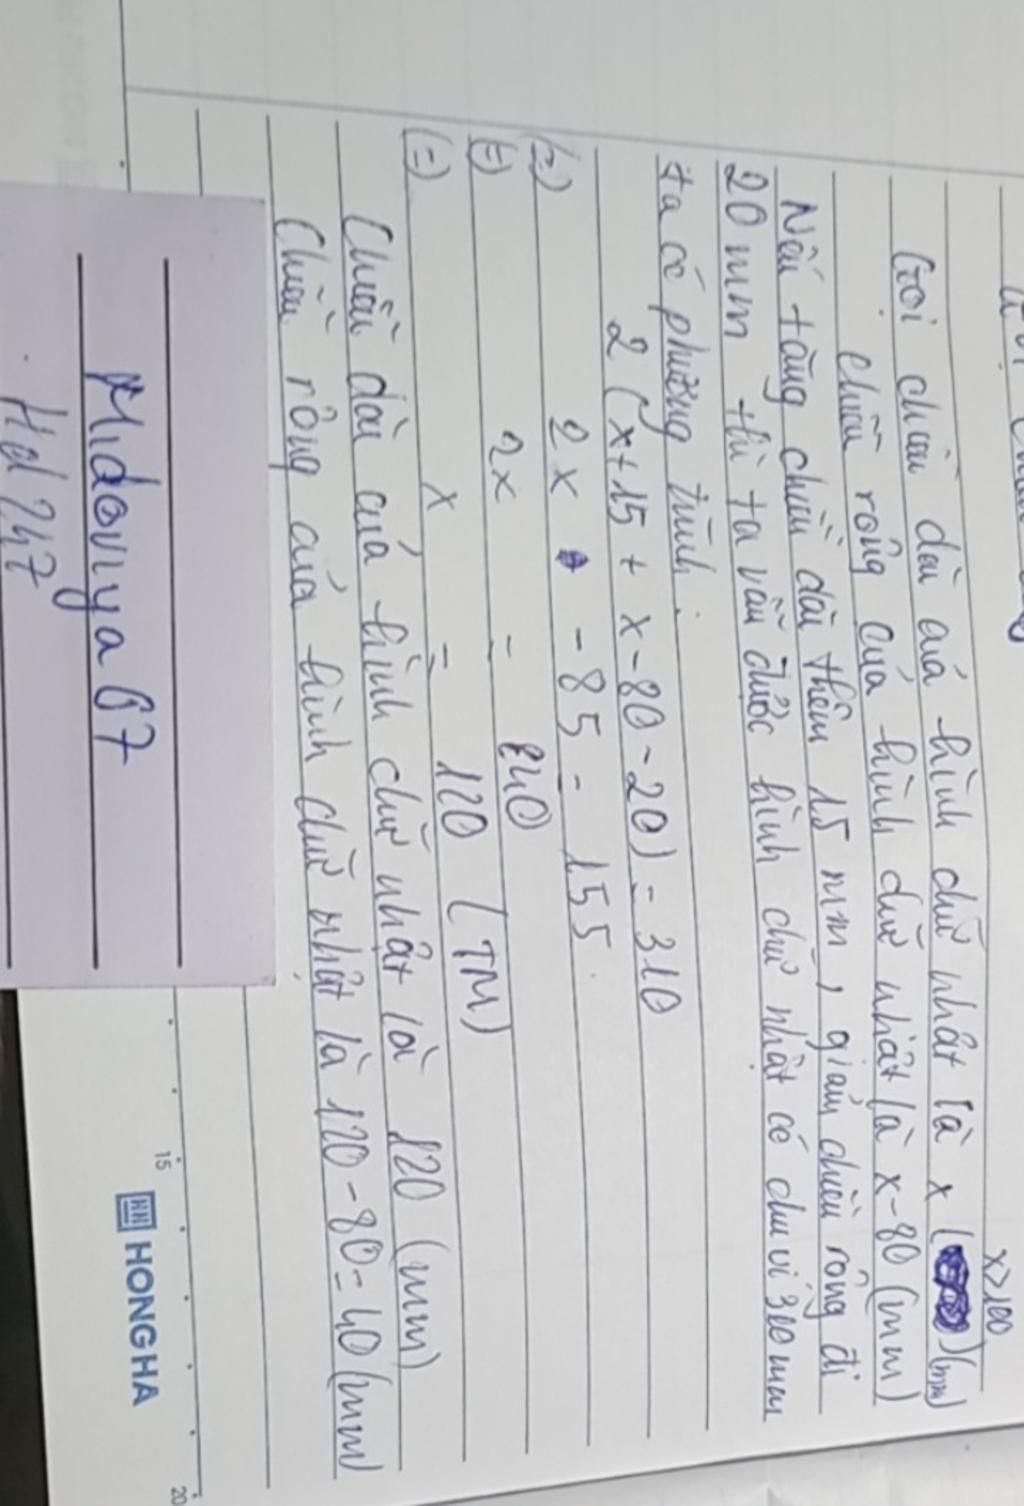 x>100
Gọi chiều dài của hình chữ nhật là x ( ) (mm)
chiều rộng của hình chữ nhật là x-80 (mm)
Nếu tăng chiều dài thêm 15 mm, giảm chiều rộng đi
20 mm thì ta vẫn được hình chữ nhật có chu vi 310 mm
ta có phương trình:
2 (x+15 + x-80-20) = 310
(=) 2x - 85 = 155
(=) 2x = 240
(=) x = 120 (TM)
Chiều dài của hình chữ nhật là 120 (mm)
Chiều rộng của hình chữ nhật là 120-80=40 (mm)
Midoriya67
Hd247
15
20
HH HONGHA